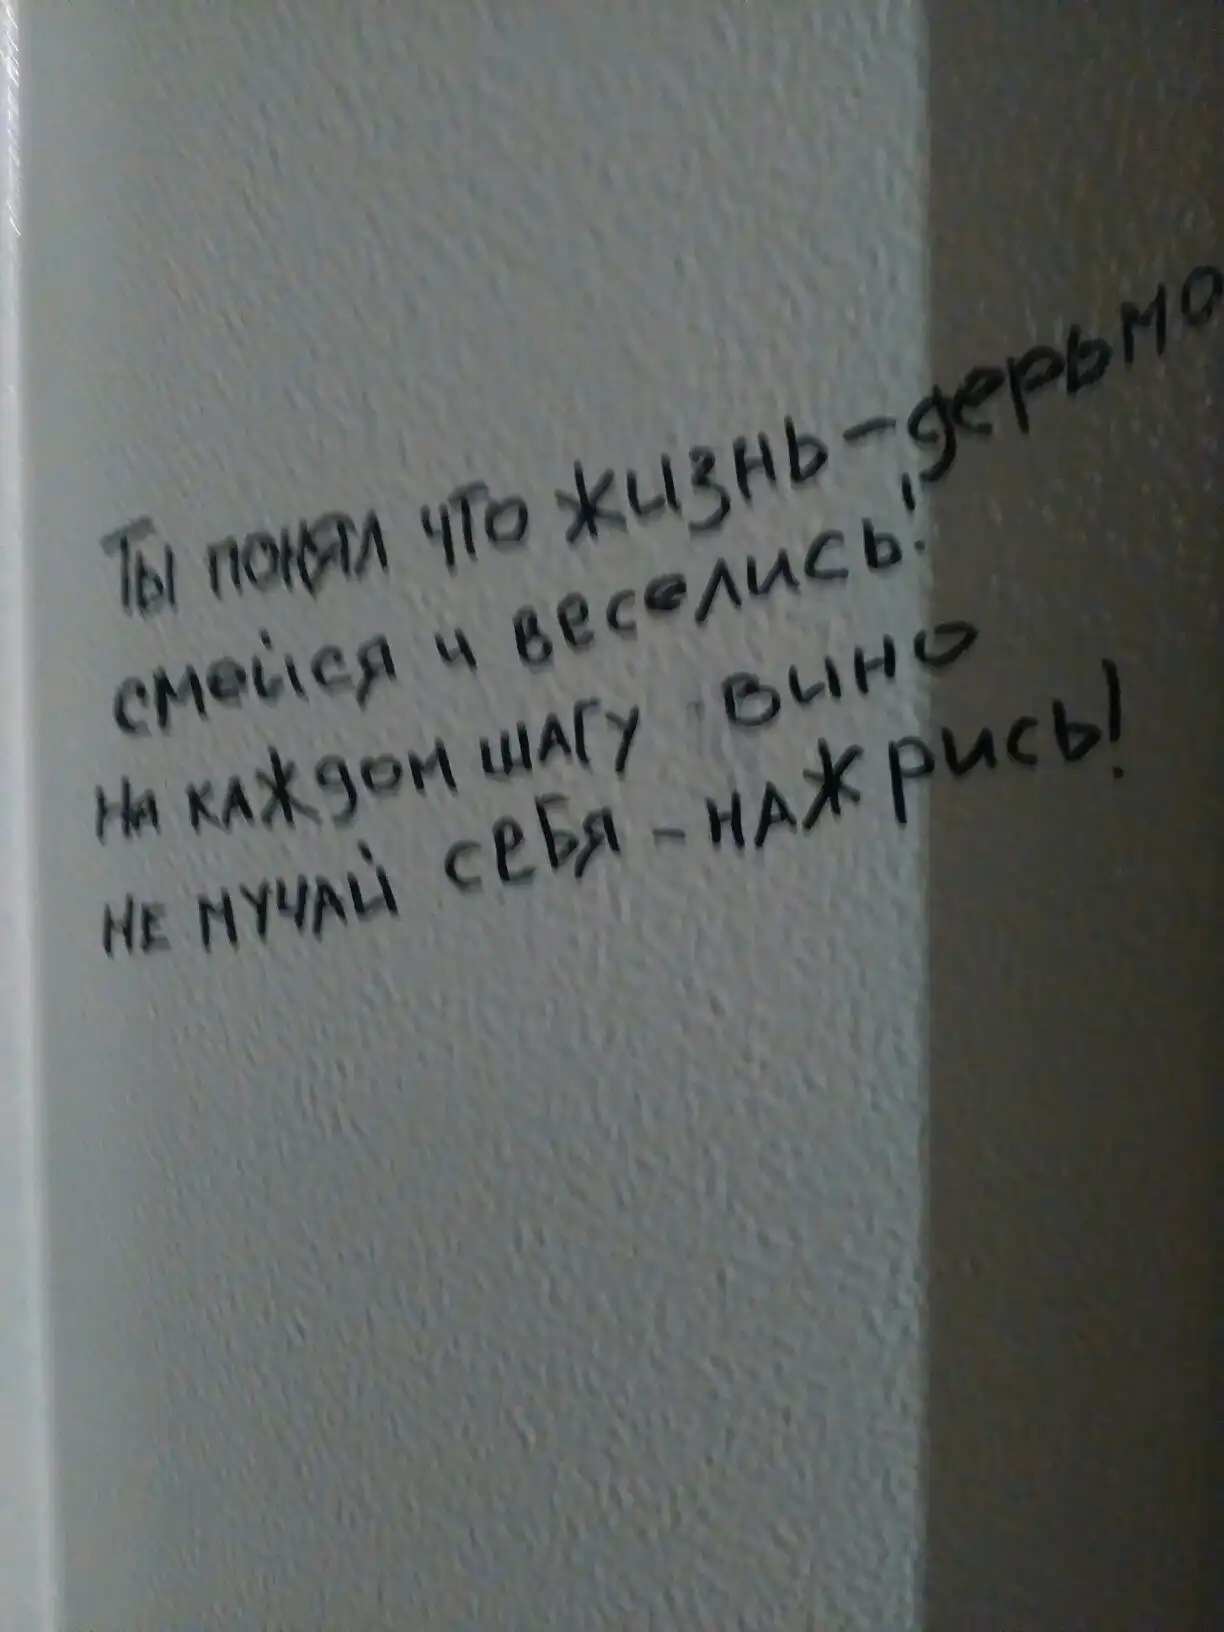 Ты понял что жизнь - дерьмо
смейся и веселись!
На каждом шагу вино
не мучай себя - нажрись!